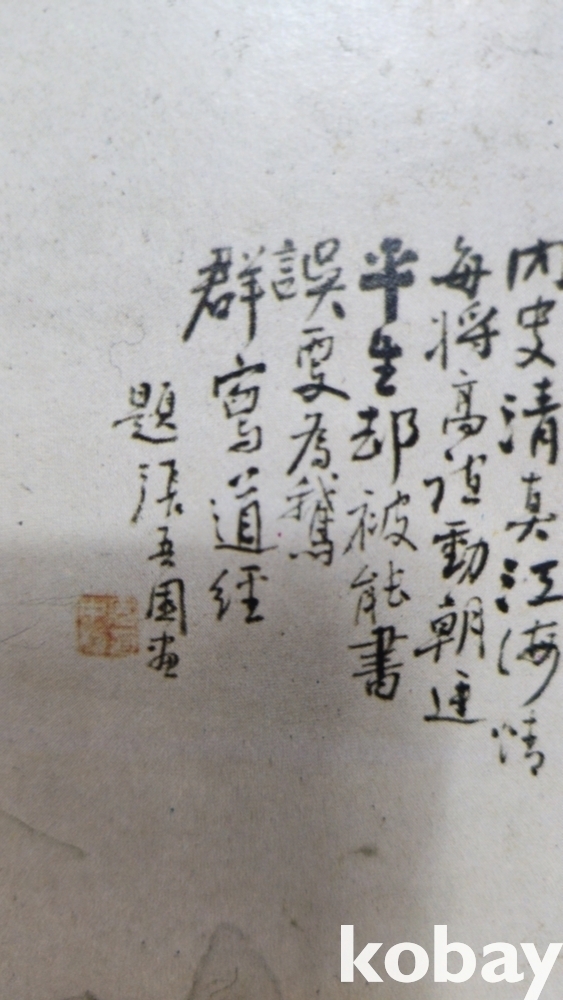 内史清真江海情
每將高誼動朝廷
平生却被能書
誤更為鵝
群寫道經
題張吾園畫
kobay